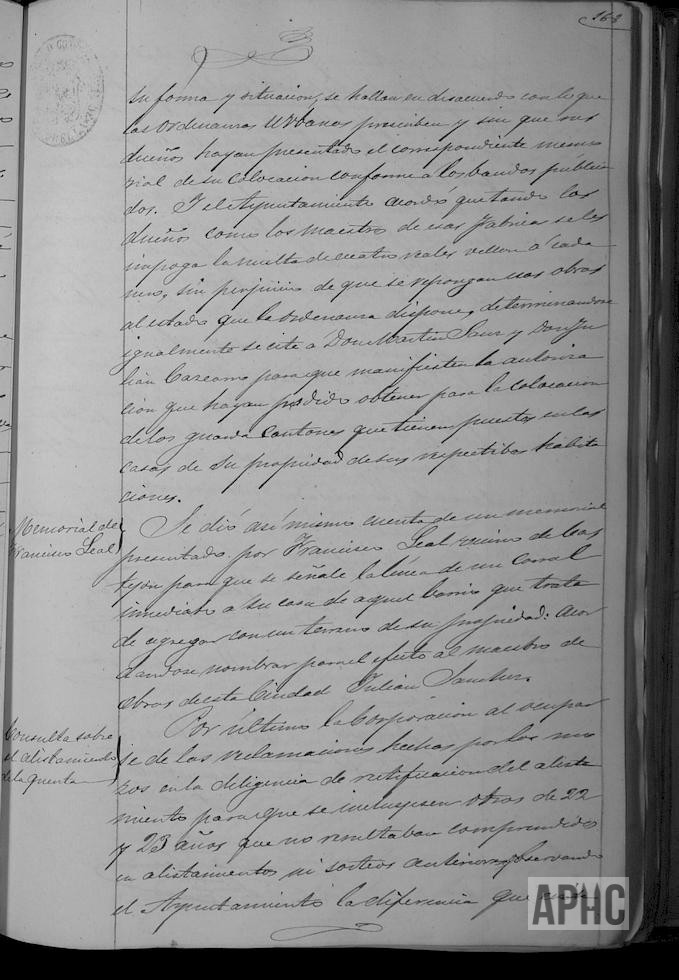 168
su forma y situacion, se hallan en desacuerdo con lo que
las Ordenanzas Urbanas prescriben y sin que sus
dueños hayan presentado el correspondiente memo
rial de su colocacion conforme a los bandos publica
dos. Y el Ayuntamiento acordó que tando los
dueños como los maestro de esas fabricas se les
imponga la multa de cuatro reales vellon á cada
uno, sin perjuicio de que se repongan esas obras
al estado que la ordenanza dispone, determinandose
igualmente se cite a Don Martin Sanz y Don Ju
lián Cazcarro para que manifiesten la autoriza
cion que hayan podido obtener para la colocacion
de los guarda cantones que tienen puestos en las
casas de su propiedad de sus respectibas habita
ciones.
Memorial de
Francisco Leal
Se dió asi mismo cuenta de un memorial
presentado por Francisco Leal vecino de Cas
tejon para que se señale la linea de un corral
inmediato a su casa de aquel barrio que trata
de agregar con un terreno de su propiedad: Acor
dandose nombrar para el efecto al maestro de
obras de esta Ciudad Julian Sanchez.
Consulta sobre
el alistamiento
de la quinta
Por último la Corporacion al ocupar
se de las reclamaciones hechas por los mo
zos en la diligencia de rectificacion del alista
miento para que se incluyesen otros de 22
y 23 años que no resultaban comprendidos
en alistamientos ni sorteos anteriores, observando
el Ayuntamiento la diferencia que
APHC